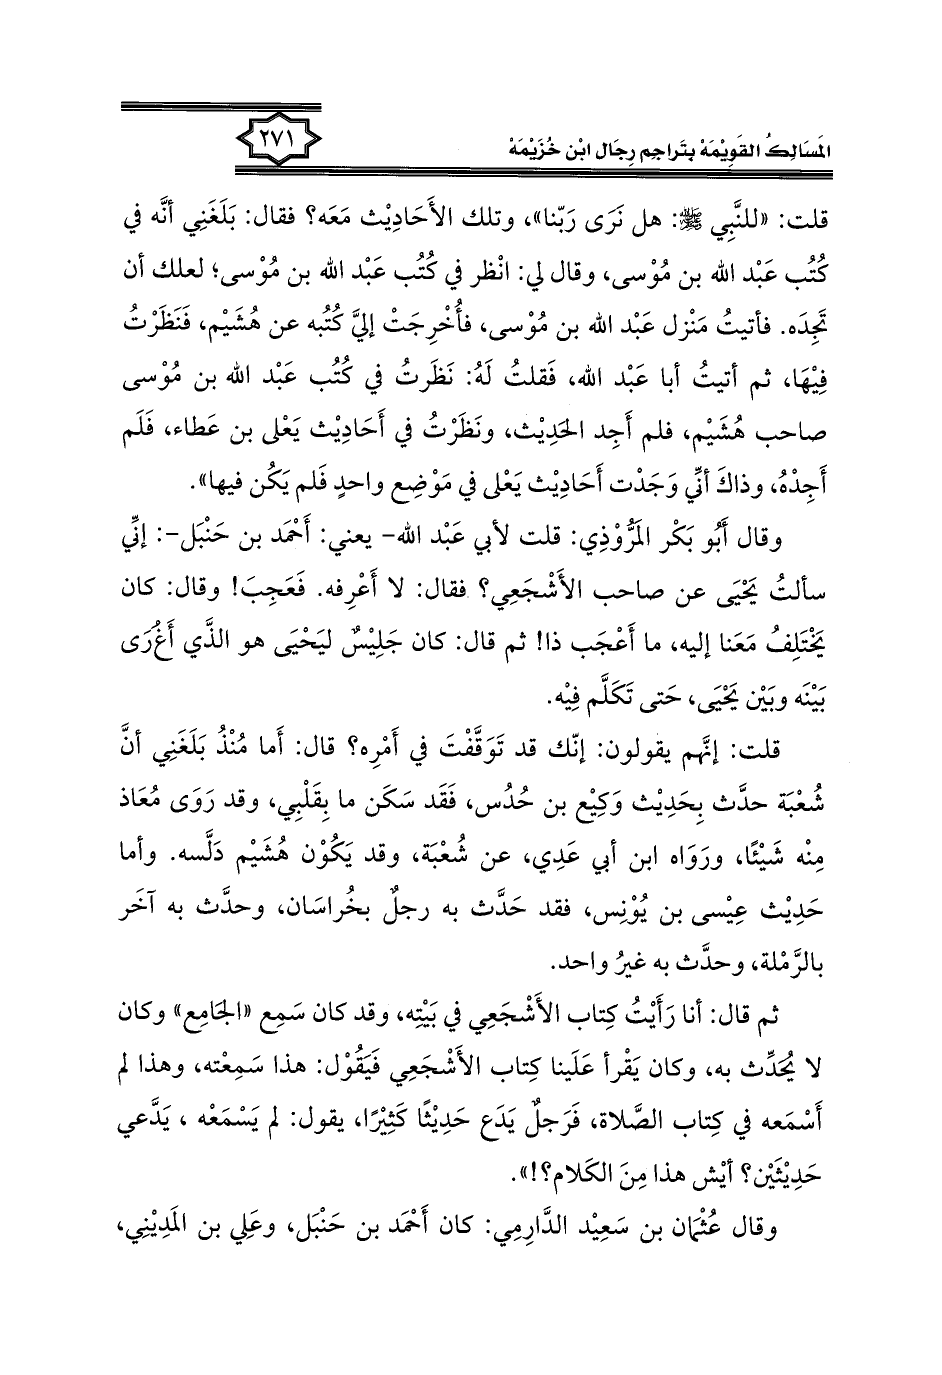 المَسَالِكُ القَوِيْمَهْ بِتَراجِم رِجَال ابْن خُزَيْمَهْ
٢٧١
قلت: «للنَّبِي ﷺ: هل نَرَى رَبّنا»، وتلك الأَحَادِيْث مَعَه؟ فقال: بَلَغَنِي أنَّه في
كُتُب عَبْد الله بن مُوْسى، وقال لي: انْظر في كُتُب عَبْد الله بن مُوْسى؛ لعلك أن
تَجِدَه. فأتيتُ مَنْزل عَبْد الله بن مُوْسى، فأُخْرِجَتْ إليَّ كُتُبه عن هُشَيْم، فَنَظَرْتُ
فِيْهَا، ثم أتيتُ أبا عَبْد الله، فَقلتُ لَهُ: نَظَرتُ في كُتُب عَبْد الله بن مُوْسى
صاحب هُشَيْم، فلم أَجِد الحَدِيْث، ونَظَرْتُ في أَحَادِيْث يَعْلى بن عَطاء، فَلَم
أَجِدْهُ، وذاكَ أنِّي وَجَدْت أَحَادِيْث يَعْلى في مَوْضِع واحدٍ فَلم يَكُن فيها».
وقال أَبُو بَكْر المَرُّوْذِي: قلت لأبي عَبْد الله- يعني: أَحْمَد بن حَنْبَل-: إنِّي
سألتُ يَحْيَى عن صاحب الأَشْجَعِي؟ فقال: لا أَعْرِفه. فَعَجِبَ! وقال: كان
يَخْتَلِفُ مَعَنا إليه، ما أَعْجَب ذا! ثم قال: كان جَلِيْسٌ ليَحْيَى هو الذَّي أَغْرَى
بَيْنَه وبَيْن يَحْيَى، حَتى تَكَلَّم فِيْه.
قلت: إنَّهم يقولون: إنّك قد تَوَقَّفْتَ في أَمْرِه؟ قال: أَما مُنْذُ بَلَغَنِي أنَّ
شُعْبَة حدَّث بِحَدِيْث وَكِيْع بن حُدُس، فَقَد سَكَن ما بِقَلْبِي، وقد رَوَى مُعَاذ
مِنْه شَيْئًا، ورَوَاه ابن أبي عَدِي، عن شُعْبَة، وقد يَكُوْن هُشَيْم دَلَّسه. وأما
حَدِيْث عِيْسى بن يُوْنِس، فقد حَدَّث به رجلٌ بخُراسَان، وحدَّث به آخَر
بالرَّمْلة، وحدَّث به غيرُ واحد.
ثم قال: أنا رَأَيْتُ كِتاب الأَشْجَعِي في بَيْتِه، وقد كان سَمِع «الجَامِع» وكان
لا يُحَدِّث به، وكان يَقْرأ عَلَينا كِتاب الأَشْجَعِي فَيَقُوْل: هذا سَمِعْته، وهذا لم
أَسْمَعه في كِتاب الصَّلاة، فَرَجلٌ يَدَع حَدِيْثًا كَثِيْرًا، يقول: لم يَسْمَعْه ، يَدَّعي
حَدِيْثَيْن؟ أَيْش هذا مِنَ الكَلام؟!».
وقال عُثْمَان بن سَعِيْد الدَّارِمِي: كان أَحْمَد بن حَنْبَل، وعَلِي بن المَدِيْنِي،